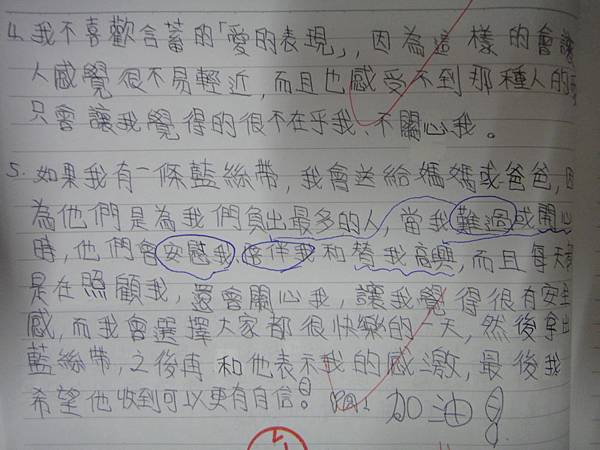 4. 我不喜歡含蓄的「愛的表現」,因為這樣的會讓
人感覺很不易輕近,而且也感受不到那種人的
只會讓我覺得的很不在乎我、不關心我。
5. 如果我有一條藍絲帶,我會送給媽媽或爸爸,因
為他們是為我們負出最多的人,當我難過或開心
時,他們會安慰我、陪伴我和替我高興,而且每天
是在照顧我,還會關心我,讓我覺得很有安全
感,而我會選擇大家都很快樂的一天,然後拿出
藍絲帶,之後再和他表示我的感激,最後我
希望他收到可以更有自信。加油!